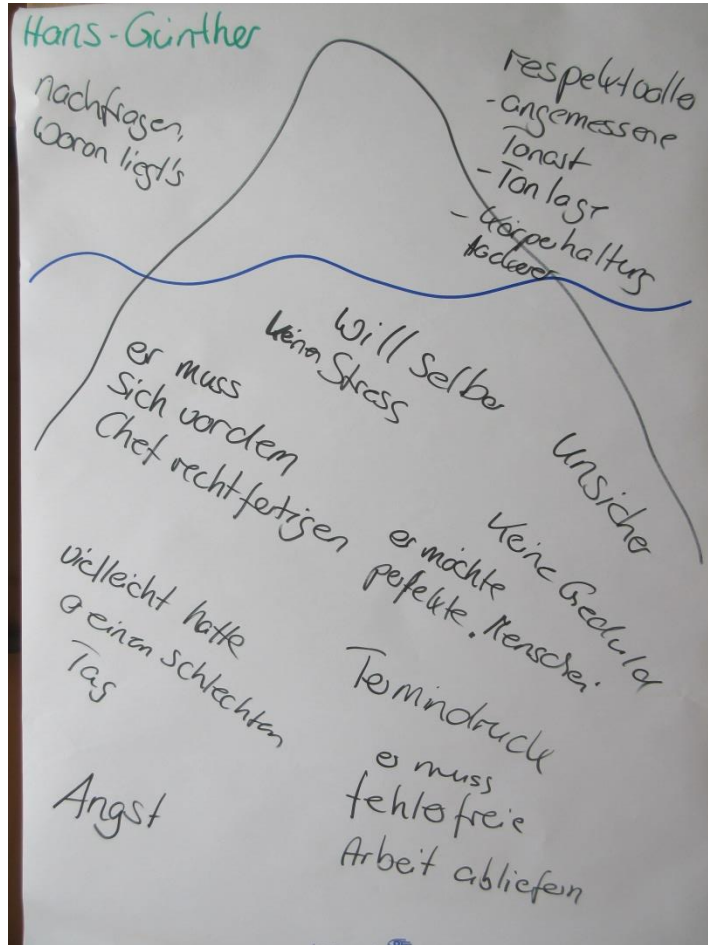 Hans-Günther
nachfragen,
woran liegt's
respektvolle
- angemessene
Tonart
- Tonlage
- Körperhaltung
lockerer
will selber
keinen Stress
er muss
sich vor dem
Chef rechtfertigen
unsicher
keine Geduld
er möchte
perfekte Menschen
vielleicht hatte
er einen schlechten
Tag
Termindruck
Angst
er muss
fehlerfreie
Arbeit abliefern